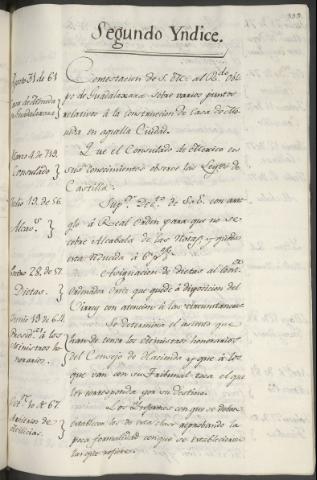 Segundo Yndice.
Agosto 31 de 63
Casa de Moneda
en Guadalaxara
Contestacion de S. Exc. al Obis-
po de Guadalaxara sobre varios puntos
relativos à la construccion de Casa de Mo-
neda en aquella Ciudad.
Marzo 4 de 713
Consulado
Que el Consulado de Mexico en
sus conocimientos observe las Leyes de
Castilla.
Julio 19 de 56
de S. E. con arre-
glo à Real Orden para que no se
cobre Alcabala de las
reducida à
Enero 28 de 57
Dietas
Asignacion de dietas al
Ordenador Ortiz que quedó à disposicion del
Virrey con atencion à las circunstancias
Junio 19 de 64
à los
Ministros ho-
norarios.
Se determina el asiento que
han de tener los Ministros honorarios
del Consejo de Hacienda y que à los
que van con su Tribunal toca el que
les corresponda por su destino.
de 67
de
Milicias
Los Ynformes con que se deben
establecer los de esta clase reprobando la
poca formalidad con que se establecieron
los que refiere.